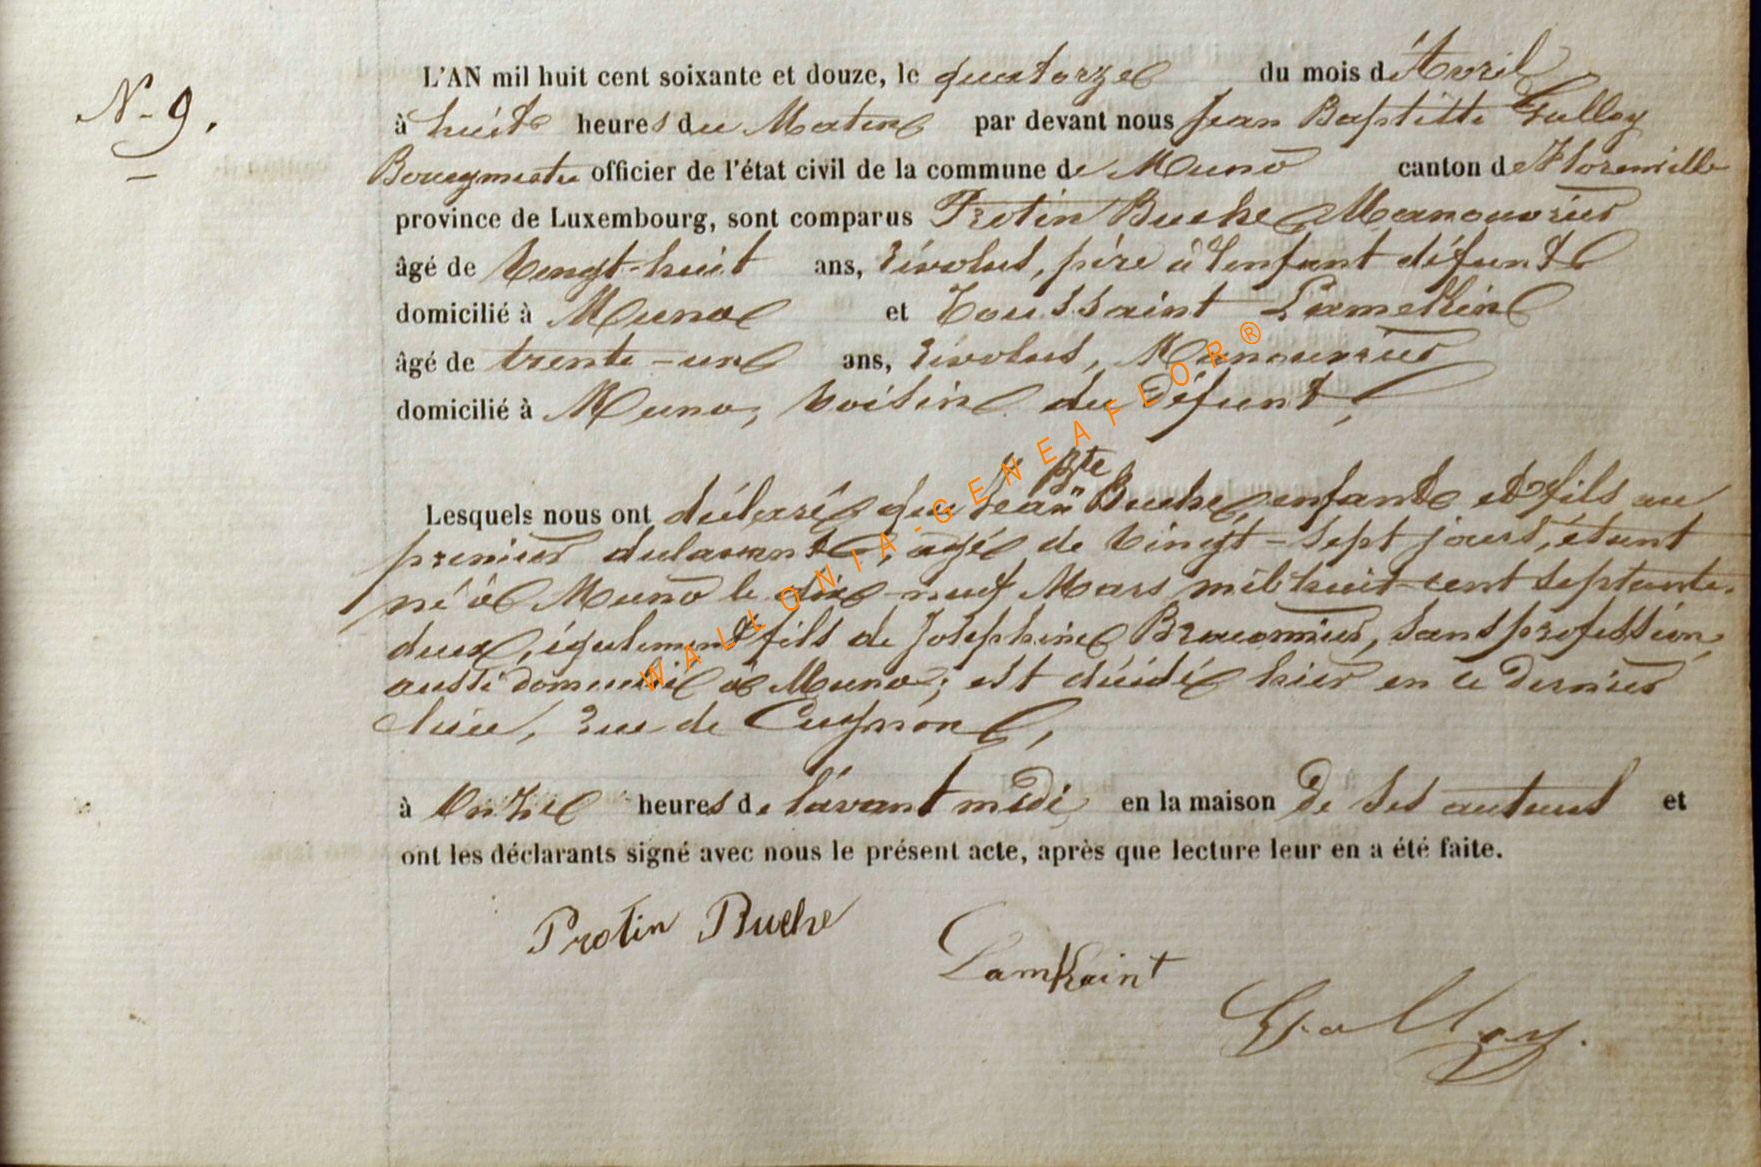 N° 9.
L'AN mil huit cent soixante et douze, le quatorze du mois d'Avril
à huit heures du Matin par devant nous Jean Baptiste Galloy
Bourgmestre officier de l'état civil de la commune de Muno canton de Florenville
province de Luxembourg, sont comparus Protin Buche Manouvrier
âgé de vingt-huit ans, révolus, père à l'enfant défunt
domicilié à Muno et Toussaint Lamekin
âgé de trente-un ans, révolus, Manouvrier
domicilié à Muno, voisin du défunt,
Lesquels nous ont déclaré que Jean Bte Buche, enfant et fils au
premier déclarant, agé de vingt-sept jours, étant
né à Muno le dix-neuf Mars mil huit-cent septante-
deux, également fils de Josephine Braconnier, sans profession,
aussi domicilié à Muno; est décédé hier en ce dernier
lieu, rue de Cugnon,
à Onze heures de l'avant midi en la maison de ses auteurs et
ont les déclarants signé avec nous le présent acte, après que lecture leur en a été faite.
Protin Buche
Lamkaint
Galloy.
WALLONIA-GENEAFLOR®